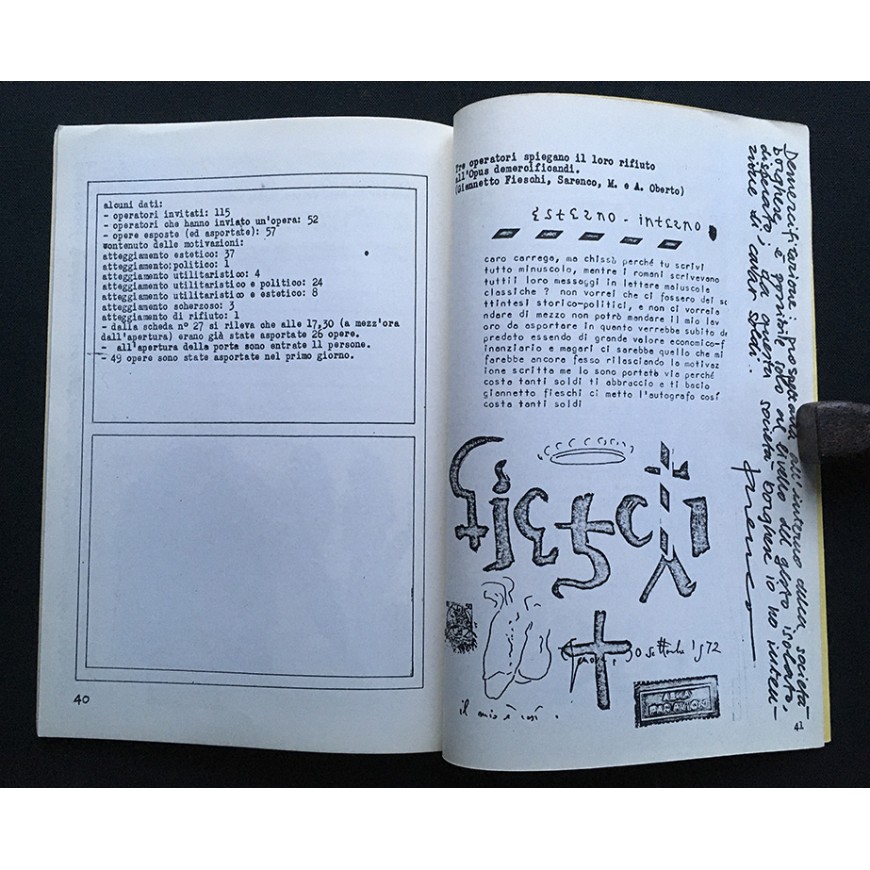 alcuni dati:
- operatori invitati: 115
- operatori che hanno inviato un'opera: 52
- opere esposte (ed asportate): 57
contenuto delle motivazioni:
atteggiamento estetico: 37
atteggiamento politico: 1
atteggiamento utilitaristico: 4
atteggiamento utilitaristico e politico: 24
atteggiamento utilitaristico e estetico: 8
atteggiamento scherzoso: 3
atteggiamento di rifiuto: 1
- dalla scheda n° 27 si rileva che alle 17,30 (a mezz'ora
dall'apertura) erano già state asportate 26 opere.
- all'apertura della porta sono entrate 11 persone.
- 49 opere sono state asportate nel primo giorno.
40
Tre operatori spiegano il loro rifiuto
all'Opus demercificandi.
(Giannetto Fieschi, Sarenco, M. e A. Oberto)
esterno - interno
caro carrega, ma chissà perché tu scrivi
tutto minuscolo, mentre i romani scrivevano
tutti i loro messaggi in lettere maiuscole
classiche ? non vorrei che ci fossero dei so
ttintesi storico-politici, e non ci vorrei a
ndare di mezzo non potrò mandare il mio lav
oro da asportare in quanto verrebbe subito de
predato essendo di grande valore economico-f
inanziario e magari ci sarebbe quello che mi
farebbe ancora fesso rilasciando la motivaz
ione scritta me lo sono portato via perché
costa tanti soldi ti abbraccio e ti bacio
giannetto fieschi ci metto l'autografo così
costa tanti soldi
fieschi
Genova, 30 settembre 1972
il mio è così.
Demercificazione: prospettarla all'interno della società
borghese, è possibile solo al livello del gesto isolato,
disperato; da questa società borghese io ho inten-
zione di cavar soldi..
Sarenco
41